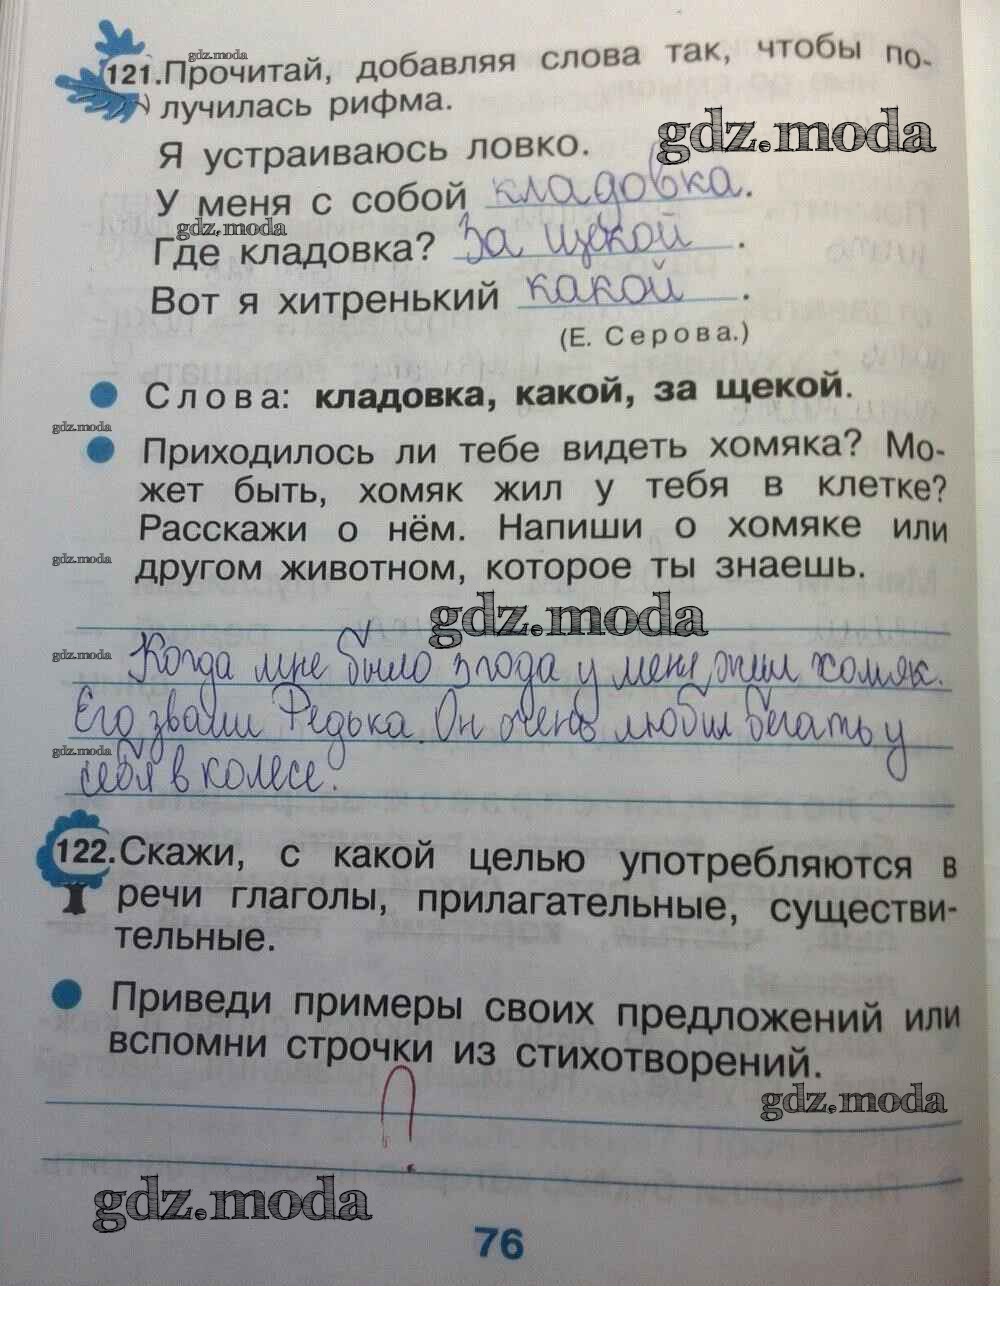 gdz.moda
121.Прочитай, добавляя слова так, чтобы по-
лучилась рифма.
gdz.moda
Я устраиваюсь ловко.
У меня с собой кладовка.
gdz.moda
Где кладовка? За щекой.
Вот я хитренький какой.
(Е. Серова.)
Слова: кладовка, какой, за щекой.
gdz.moda
Приходилось ли тебе видеть хомяка? Мо-
жет быть, хомяк жил у тебя в клетке?
Расскажи о нём. Напиши о хомяке или
gdz.moda
другом животном, которое ты знаешь.
gdz.moda
gdz.moda
Когда мне было 3 года у меня жил хомяк.
Его звали Федька. Он очень любил бегать у
gdz.moda
себя в колесе.
122.Скажи, с какой целью употребляются в
речи глаголы, прилагательные, существи-
тельные.
Приведи примеры своих предложений или
вспомни строчки из стихотворений.
?
gdz.moda
gdz.moda
76